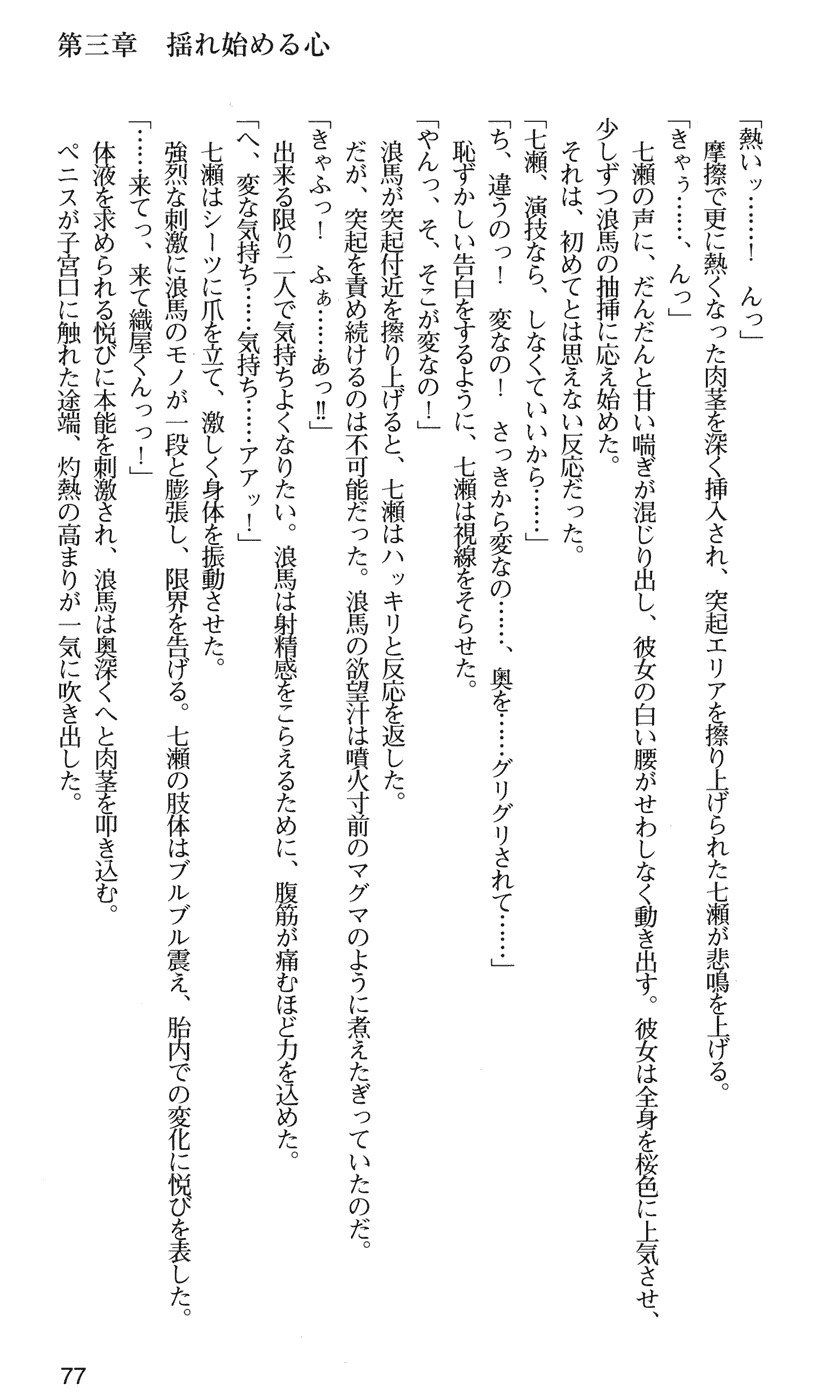 第三章　揺れ始める心
「熱いッ……！　んっ」
摩擦で更に熱くなった肉茎を深く挿入され、突起エリアを擦り上げられた七瀬が悲鳴を上げる。
「きゃぅ……、んっ」
七瀬の声に、だんだんと甘い喘ぎが混じり出し、彼女の白い腰がせわしなく動き出す。彼女は全身を桜色に上気させ、
少しずつ浪馬の抽挿に応え始めた。
それは、初めてとは思えない反応だった。
「七瀬、演技なら、しなくていいから……」
「ち、違うのっ！　変なの！　さっきから変なの……、奥を……グリグリされて……」
恥ずかしい告白をするように、七瀬は視線をそらせた。
「やんっ、そ、そこが変なの！」
浪馬が突起付近を擦り上げると、七瀬はハッキリと反応を返した。
だが、突起を責め続けるのは不可能だった。浪馬の欲望汁は噴火寸前のマグマのように煮えたぎっていたのだ。
「きゃふっ！　ふぁ……あっ!!」
出来る限り二人で気持ちよくなりたい。浪馬は射精感をこらえるために、腹筋が痛むほど力を込めた。
「へ、変な気持ち……気持ち……アアッ！」
七瀬はシーツに爪を立て、激しく身体を振動させた。
強烈な刺激に浪馬のモノが一段と膨張し、限界を告げる。七瀬の肢体はブルブル震え、胎内での変化に悦びを表した。
「……来てっ、来て織屋くんっっ！」
体液を求められる悦びに本能を刺激され、浪馬は奥深くへと肉茎を叩き込む。
ペニスが子宮口に触れた途端、灼熱の高まりが一気に吹き出した。
77